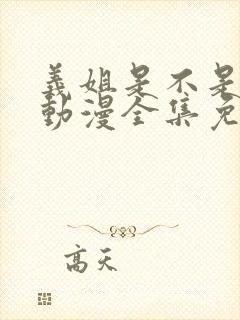 義姐是不是
動漫全集免
高天